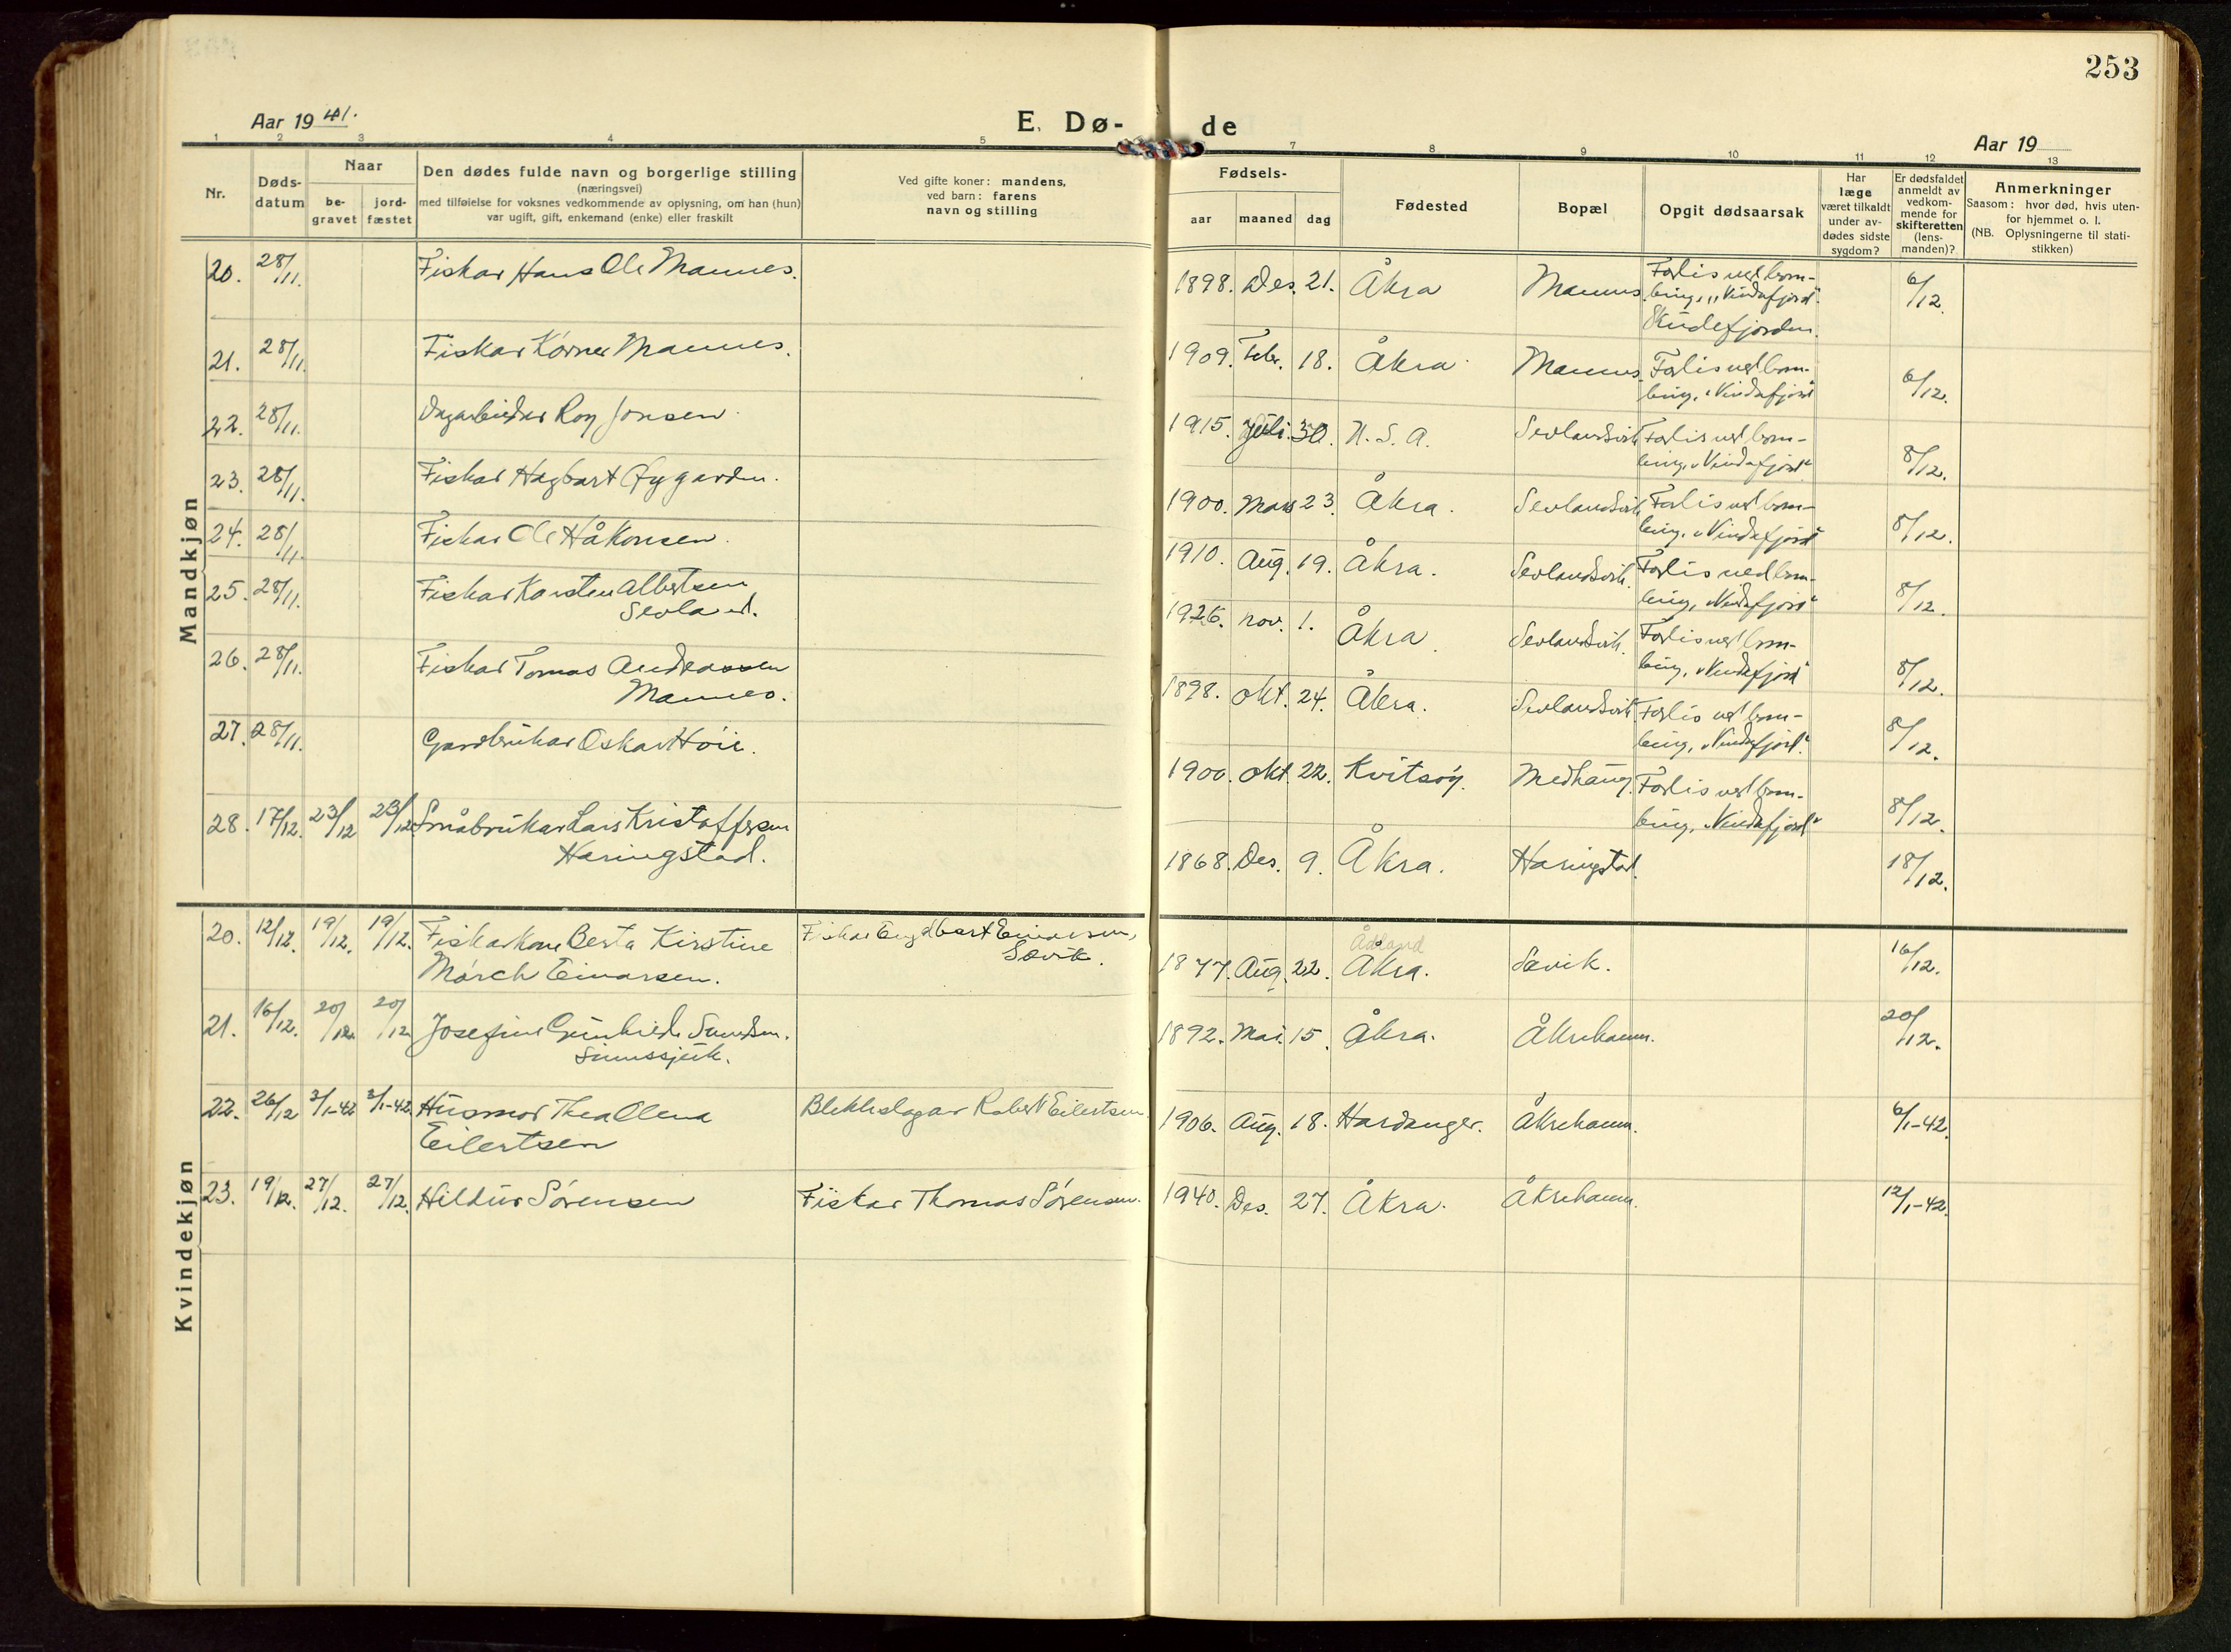 253
Aar 19 41.
E. Dø-
de
Aar 19
1 2 3 4 5 7 8 9 10 11 12 13
Nr.
Døds-
datum
Naar
be-
gravet
jord-
fæstet
Den dødes fulde navn og borgerlige stilling
(næringsvei)
med tilføielse for voksnes vedkommende av oplysning, om han (hun)
var ugift, gift, enkemand (enke) eller fraskilt
Ved gifte koner: mandens,
ved barn: farens
navn og stilling
Fødsels-
aar
maaned
dag
Fødested
Bopæl
Opgit dødsaarsak
Har
læge
været tilkaldt
under av-
dødes sidste
sygdom?
Er dødsfaldet
anmeldt av
vedkom-
mende for
skifteretten
(lens-
manden)?
Anmerkninger
Saasom: hvor død, hvis uten-
for hjemmet o. l.
(NB. Oplysningerne til stati-
stikken)
Mandkjøn
20. 28/11. Fiskar Hans Ole Mannes. 1898. Des. 21. Åkra Mannes. Forlis ved bom- 6/12.
bing, „Vindafjord“.
Skudefjorden.
21. 28/11. Fiskar Körner Mannes. 1909. Febr. 18. Åkra. Mannes. Forlis ved bom- 6/12.
bing, „Vindafjord“
22. 28/11. Dagarbeider Roy Jonsen. 1915. Juli. 30. U. S. A. Sevlandsvik Forlis ved bom- 8/12.
bing, „Vindafjord“
23. 28/11. Fiskar Hagbart Øygarden. 1900. Mars 23. Åkra. Sevlandsvik Forlis ved bom- 8/12.
bing, „Vindafjord“
24. 28/11. Fiskar Ole Håkonsen. 1910. Aug. 19. Åkra. Sevlandsvik. Forlis ved bom- 8/12.
bing, „Vindafjord“
25. 28/11. Fiskar Karsten Albertsen 1926. nov. 1. Åkra. Sevlandsvik. Forlis ved bom- 8/12.
Sevland. bing, „Vindafjord“
26. 28/11. Fiskar Tomas Andreassen 1898. okt. 24. Åkra. Sevlandsvik Forlis ved bom- 8/12.
Mannes. bing, „Vindafjord“.
27. 28/11. Gardbrukar Oskar Höie. 1900. okt. 22. Kvitsöy. Medhaug. Forlis ved bom- 8/12.
bing, „Vindafjord“
28. 17/12. 23/12 23/12 Småbrukar Lars Kristoffersen 1868. Des. 9. Åkra. Haringstad. 18/12.
Haringstad.
Kvindekjøn
20. 12/12. 19/12. 19/12. Fiskarkone Berta Kirstine Fiskar Engelbart Einarsen, 1877. Aug. 22. Ådland Åkra. Sævik. 16/12.
Mörch Einarsen. Sævik.
21. 16/12. 20/12 20/12 Josefine Gunhilde Sandsen. 1892. Mai. 15. Åkra. Åkrehamn. 20/12.
Sinnssjuk.
22. 26/12 3/1-42 3/1-42 Husmor Thea Olena Blekkslagar Robert Eilertsen. 1906. Aug. 18. Hardanger. Åkrehamn. 6/1-42.
Eilertsen
23. 19/12. 27/12. 27/12. Hildur Sörensen Fiskar Thomas Sörensen. 1940. Des. 27. Åkra. Åkrehamn. 12/1-42.